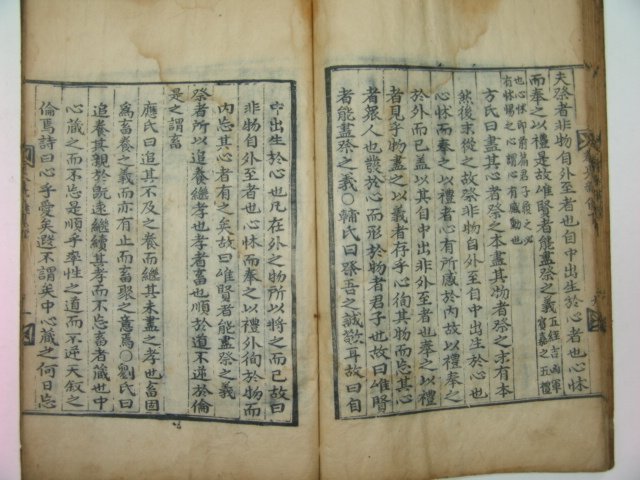 夫祭者非物自外至者也自中出生於心者也心怵
而奉之以禮是故唯賢者能盡祭之義
五經吉凶軍
賓嘉之五禮
也心怵即前篇君子履之必
有怵惕之心謂心有感動也
方氏曰盡其心者祭之本盡其物者祭之末有本
然後末從之故祭非物自外至自中出生於心也
心怵而奉之以禮者心有所感於內故以禮奉之
於外而已蓋以其自中出非外至者也奉之以禮
者見乎物盡之以義者存乎心徇其物而忘其心
者衆人也發於心而形於物者君子也故曰唯賢
者能盡祭之義○輔氏曰祭吾之誠敬耳故曰自
中出生於心也凡在外之物所以將之而已故曰
非物自外至者也心怵而奉之以禮外徇於物而
內忘其心者有之矣故曰唯賢者能盡祭之義
祭者所以追養繼孝也孝者畜也順於道不逆於倫
是之謂畜
應氏曰追其不及之養而繼其未盡之孝也畜固
爲畜養之義而亦有止而畜聚之意焉○劉氏曰
追養其親於旣遠繼續其孝而不忘畜者藏也中
心藏之而不忘是順乎率性之道而不逆天叙之
倫焉詩曰心乎愛矣遐不謂矣中心藏之何日忘